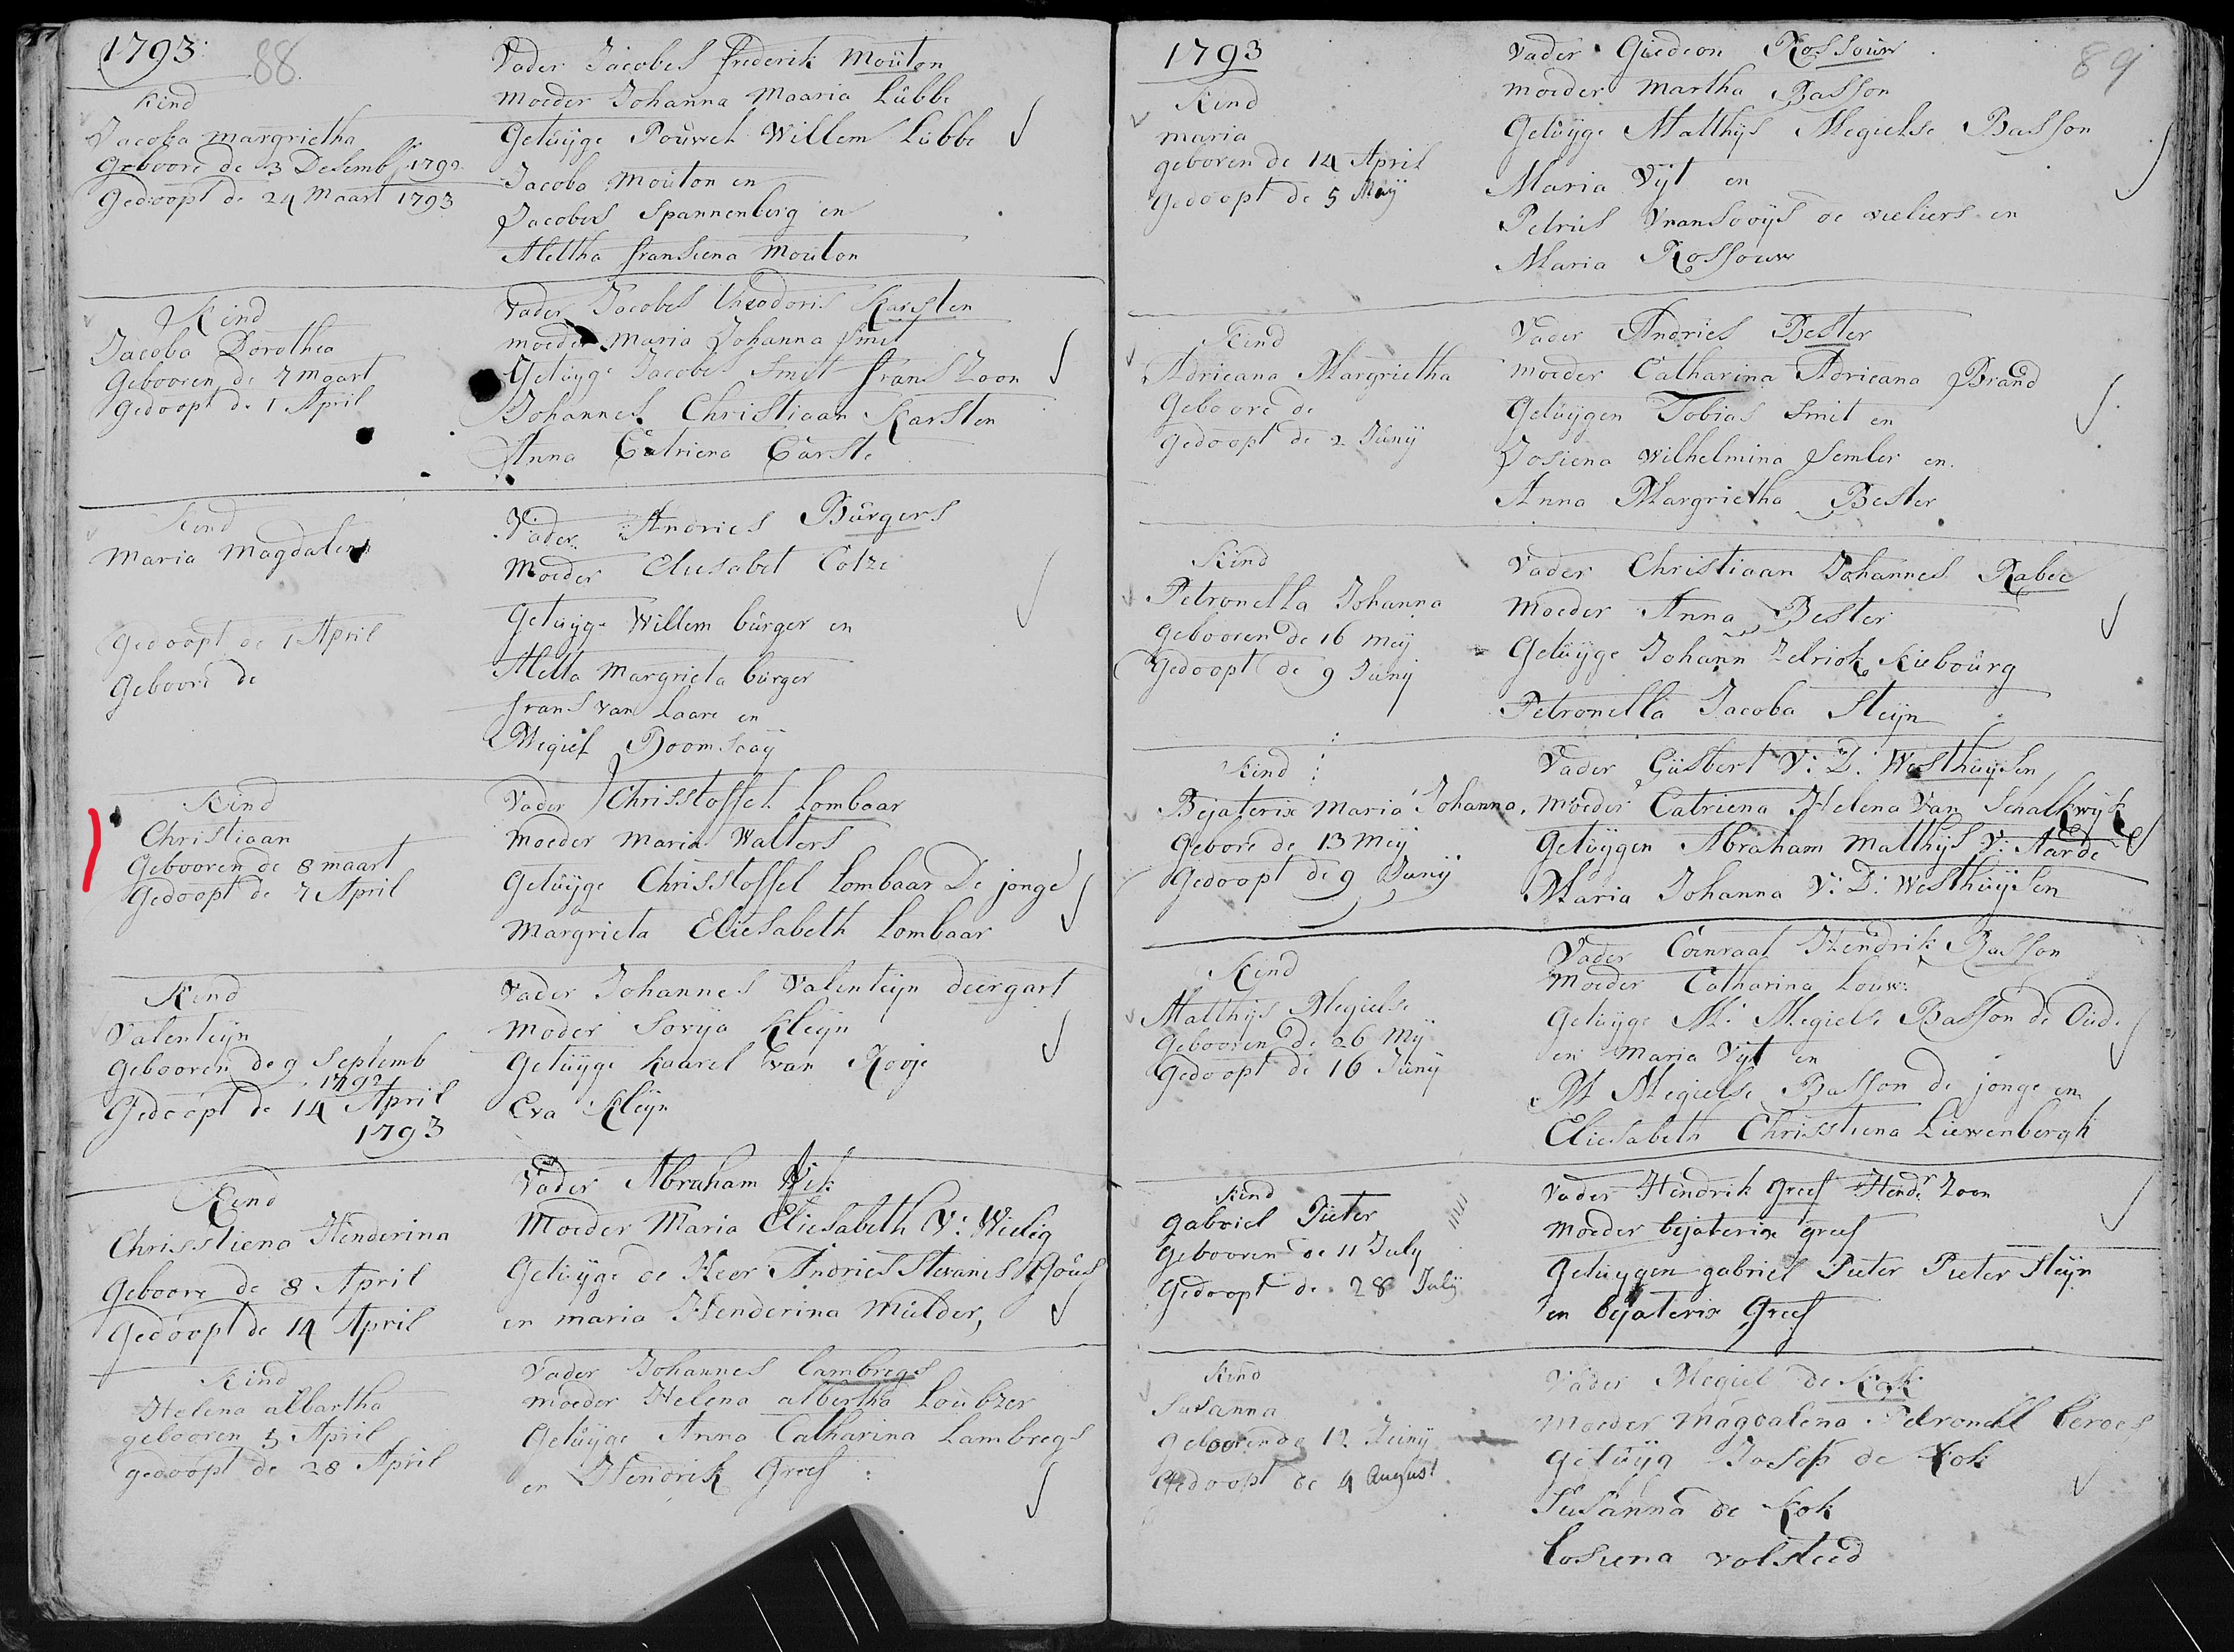 1793
88
Kind
Jacoba margrietha
Geboore de 3 Desemb 1792
Gedoopt de 24 Maart 1793
Vader Jacobes frederik Moüton
Moeder Johanna Maaria Lübbe
Getüyge Poüwel Willem Lübbe
Jacoba Moüton en
Jacobes Spannenberg en
Aletha fransiena Moüton
Kind
Jacoba Dorothea
Gebooren de 7 maart
Gedoopt de 1 April
Vader Jacobes theodoris Karsten
moeder Maria Johanna Smit
Getüyge Jacobes Smit frans Zoon
Johannes Christiaan Karsten
Anna Catriena Carste
Kind
Maria Magdalena
Gedoopt de 1 April
Geboore de
Vader Andries Bürgers
Moeder Eliesabet Cotze
Getüyge Willem bürger en
Aletta Margrieta bürger
frans van Laare en
Megiel Doomsaay
Kind
Christiaan
Gebooren de 8 maart
Gedoopt de 7 April
Vader Chrisstoffel Lombaar
Moeder Maria Walters
Getüyge Chrisstoffel Lombaar De jonge
Margrieta Eliesabeth Lombaar
Kind
Valenteyn
Gebooren de 9 Septemb
1792
Gedoopt de 14 April
1793
Vader Johannes Valenteyn deergart
Moder Sovya Kleyn
Getüyge Kaarel van Rooje
Eva Kleyn
Kind
Chrisstiena Henderina
Geboore de 8 April
Gedoopt de 14 April
Vader Abraham Vik
Moeder Maria Eliesabeth V: Wielig
Getüyge de Heer Andries Stevanis Goüs
en maria Henderina Mülder,
Kind
Helena albartha
gebooren 5 April
gedoopt de 28 April
Vader Johannes Lambregs
moeder Helena albertha Loübzer
Getüyge Anna Catharina Lambregs
en Hendrik Greef
1793
89
Kind
maria
geboren de 14 April
Gedoopt de 5 Maÿ
Vader Giedeon Rossoüw
moeder Martha Basson
Getüyge Matthÿs Megielse Basson
Maria Vÿt en
Petrüs Vransooÿs de vieliers en
Maria Rossouw
Kind
Adrieana Margrietha
Geboore de
gedoopt de 2 Jünÿ
Vader Andries Bester
moeder Catharina Adrieana Brand
Getüygen Tobias Smit en
Josiena Wilhelmina Semler en
Anna Margrietha Bester
Kind
Petronella Johanna
Gebooren de 16 meÿ
Gedoopt de 9 Jünÿ
Vader Christiaan Johannes Rabee
Moeder Anna Bester
Getüyge Johann Zedriok Kieboürg
Petronella Jacoba Steÿn
Kind
Bejaterix Maria Johanna
Gebore de 13 Meÿ
Gedoopt de 9 Jünÿ
Vader Güsbert V: D: Westhüÿsen
Moeder Catriena Helena Van Schalkwÿk
Getüygen Abraham Matthÿs V: Aarde
Maria Johanna V: D: Westhüÿsen
Kind
Matthÿs Megielse
Gebooren de 26 Mÿ
Gedoopt de 16 Jünÿ
Vader Coenraat Hendrik Basson
Moeder Catharina Louw:
Getüyge M: Megielse Basson de Oüde
en Maria Vÿt en
M Megielse Basson de jonge en
Eliesabeth Chrisstiena Liewenbergh
Kind
gabriel Püter
Gebooren de 11 July
Gedoopt de 28 Julÿ
Vader Hendrik Greef Hendr Zoon
Moeder bejaterix greef
Getüygen gabriel Püter Pieter Steÿn
en bejaterix Greef
Kind
Susanna
Geboorende 12 Jünÿ
Gedoopt de 4 August
Vader Megiel de Kok
Moeder Magdalena Petronell beroes
Getüyg Josep de Kok
Susanna de Kok
Cosiena volsteed